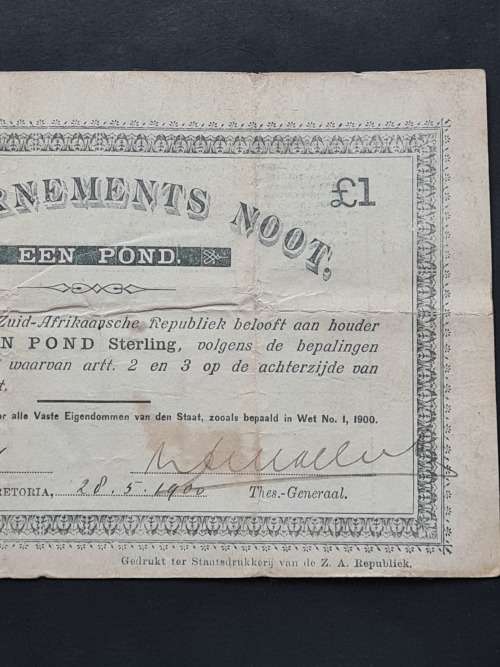 RNEMENTS NOOT,
£1
EEN POND.
Zuid-Afrikaansche Republiek belooft aan houder
N POND Sterling, volgens de bepalingen
waarvan artt. 2 en 3 op de achterzijde van
t.
or alle Vaste Eigendommen van den Staat, zooals bepaald in Wet No. 1, 1900.
RETORIA, 28.5.1900 Thes.-Generaal.
Gedrukt ter Staatsdrukkerij van de Z. A. Republiek.